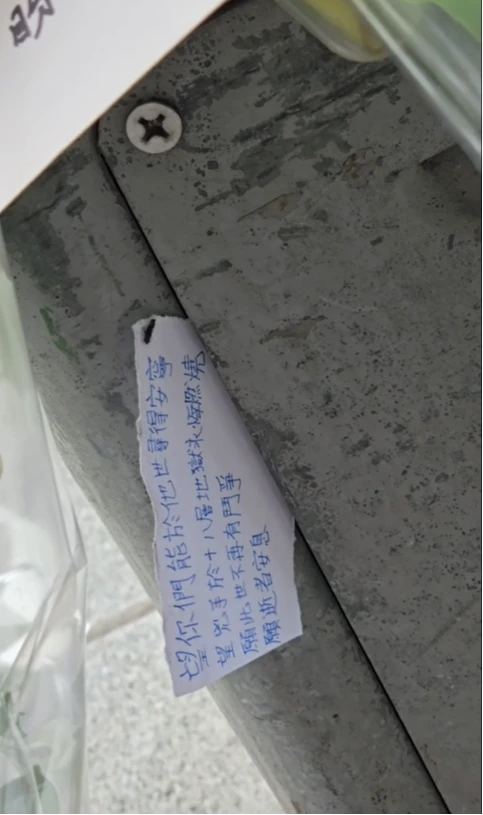 望你們能於他世尋得安寧
望兇手於十八層地獄永遠燃燒
願此世不再有鬥爭
願逝者安息